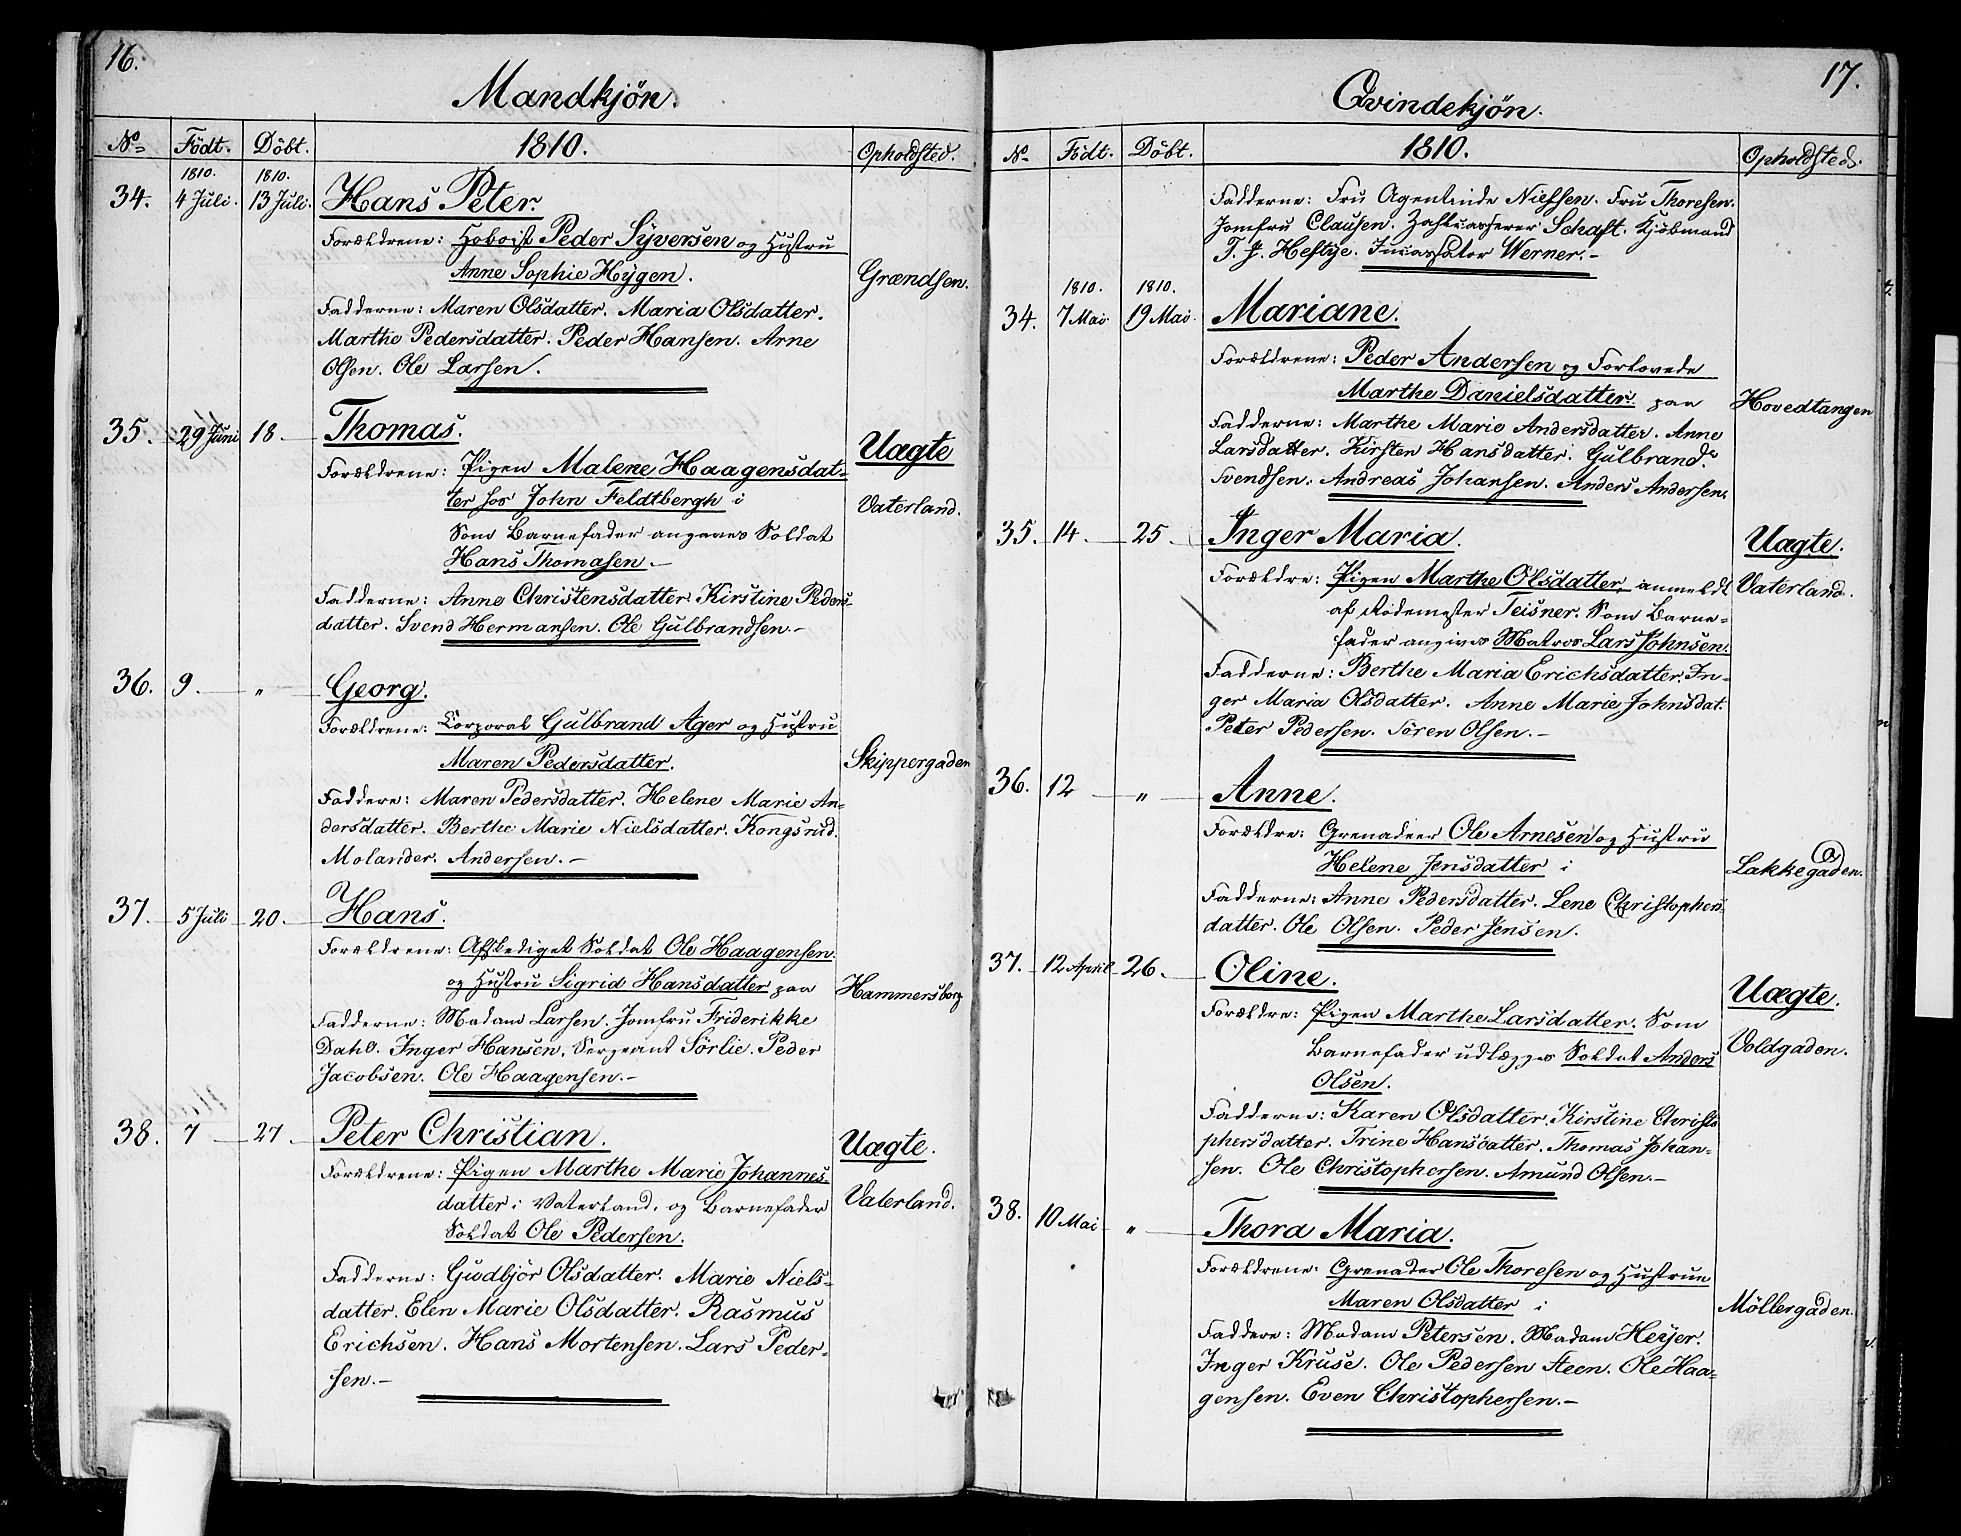 16.
Mandkjön.
No Födt. Döbt. 1810. Opholdsted.
1810. 1810.
34. 4 Juli. 13 Juli. Hans Peter.
Forældrene: Hoboist Peder Syversen og Hustru
Anne Sophie Hygen. Grændsen.
Fadderne: Maren Olsdatter. Maria Olsdatter.
Marthe Pedersdatter. Peder Hansen. Arne
Olsen. Ole Larsen.
35. 29 Juni 18. Thomas. Uægte
Forældrene: Pigen Malene Haagensdat-
ter hos John Feldtbergh i Vaterland.
Som Barnefader angives Soldat
Hans Thomasen.-
Fadderne: Anne Christensdatter. Kirstine Peders-
datter. Svend Hermansen. Ole Gulbrandsen.-
36. 9. " Georg.
Forældrene: Corporal Gulbrand Ager og Hustru
Maren Pedersdatter. Skippergaden
Faddere: Maren Pedersdatter. Helene Marie An-
dersdatter. Berthe Marie Nielsdatter. Kongsrud.
Molander. Andersen.-
37. 5 Juli 20. Hans.
Forældrene: Afskediget Soldat Ole Haagensen
og Hustru Sigrid Hansdatter paa Hammersborg
Fadderne: Madam Larsen. Jomfru Friderikke
Dahl. Inger Hansen. Sergeant Sörlie. Peder
Jacobsen. Ole Haagensen.-
38. 7 27. Peter Christian. Uægte.
Forældrene: Pigen Marthe Marie Johannes-
datter i Vaterland, og Barnefader Vaterland.
Soldat Ole Pedersen.
Fadderne: Gudbjör Olsdatter. Marie Niels-
datter. Elen Marie Olsdatter. Rasmus
Erichsen. Hans Mortensen. Lars Peder-
sen.-
17.
Qvindekjön.
No Födt. Döbt. 1810. Opholdsted.
Fadderne: Fru Agentinde Nielsen. Fru Thoresen.
Jomfru Clausen. Zahlcasserer Schaft. Kjöbmand
T. J. Heftye. Incassator Werner.-
1810. 1810.
34. 7 Mai. 19 Mai. Mariane.
Forældrene: Peder Andersen og Forlovede
Marthe Danielsdatter. paa Hovedtangen
Fadderne: Marthe Marie Andersdatter. Anne
Larsdatter. Kirsten Hansdatter. Gulbrand
Svendsen. Andreas Johansen. Anders Andersen.
35. 14. 25. Inger Maria. Uægte.
Forældre: Pigen Marthe Olsdatter, anmeldt Vaterland.
af Rodemester Teisner. Som Barne-
fader angives Matros Lars Johnsen.
Fadderne: Berthe Maria Erichsdatter. In-
ger Maria Olsdatter. Anne Marie Johnsdat.
Peter Pedersen. Sören Olsen.-
36. 12 " Anne.
Forældre: Grenadeer Ole Arnesen og Hustru
Helene Jensdatter i Lakkegaden.
Fadderne: Anne Pedersdatter. Lene Christophers-
datter. Ole Olsen. Peder Jensen.
37. 12 April 26. Oline. Uægte.
Forældre: Pigen Marthe Larsdatter. Som
Barnefader udlægges Soldat Anders Voldgaden.
Olsen.
Fadderne: Karen Olsdatter. Kirstine Christo
phersdatter. Trine Hansdatter. Thomas Johan-
sen. Ole Christophersen. Amund Olsen.-
38. 10 Mai " Thora Maria.
Forældrene: Grenader Ole Thoresen og Hustrue
Maren Olsdatter i Möllergaden.
Faddere: Madam Petersen. Madam Heyer.
Inger Kruse. Ole Pedersen Steen. Ole Haa-
gensen. Even Christophersen.-